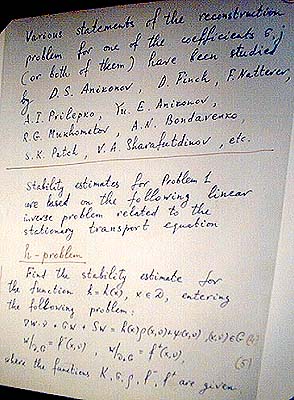 Various statements of the reconstruction
problem for one of the coefficients σ, j
(or both of them) have been studied
by D.S. Anikonov, D. Finch, F. Natterer,
A.I. Prilepko, Yu. E. Anikonov,
R.G. Mukhometov, A.N. Bondarenko,
S.K. Patch, V.A. Sharafutdinov, etc.
Stability estimates for Problem 1
are based on the following linear
inverse problem related to the
stationary transport equation
h-problem
Find the stability estimate for
the function h = h(x), x ∈ D, entering
the following problem:
∇w·υ + σw + Sw = h(x)ρ(x,υ)+ψ(x,υ), (x,υ)∈G
w/∂_G = f^-(x,υ), w/∂_+G = f^+(x,υ), (5)
where the functions K, σ, ρ, f^-, f^+ are given.